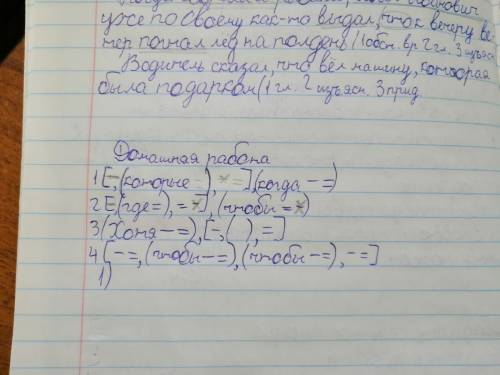 уже по своему как-то выдал, что к вечеру ве-
тер погнал лёд на полдень (1обст. вр. 2 гл. 3 изъясн
Водитель сказал, что вёл машину, которая
была подарком (1 гл. 2 изъясн. 3 прид.
Домашная работа
1 [-,(которые =), × =],(когда - =)
2 [,(где=), = ×], (чтобы = ×)
3 (Хотя - =), [-, ( ), =]
4 [- =, (чтобы - =), (чтобы - =), - =]
1)